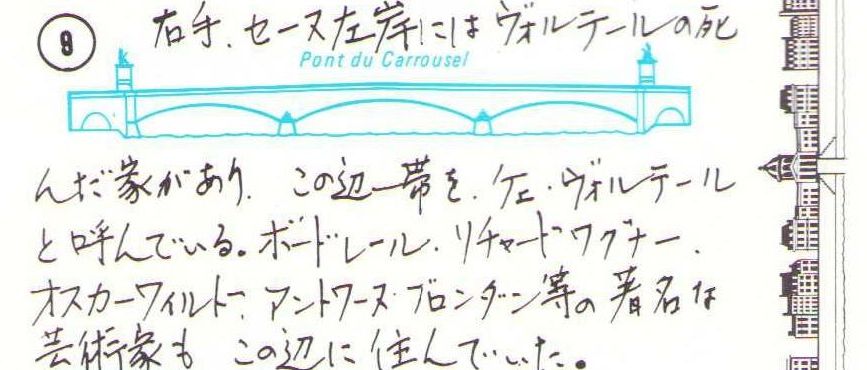 9
右手、セーヌ左岸にはヴォルテールの死
Pont du Carrousel
んだ家があり、この辺一帯を、ケ・ヴォルテール
と呼んでいる。ボードレール、リチャードワグナー、
オスカーワイルド、アントワーヌ・ブロンダン等の著名な
芸術家も この辺に住んでいた。